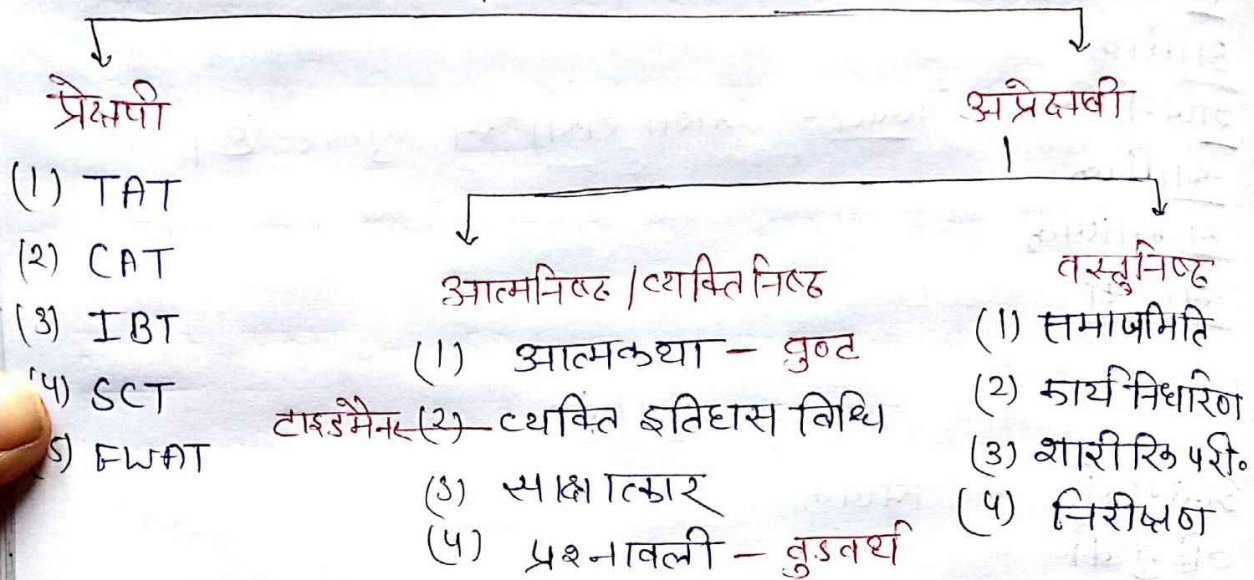 प्रेक्षपी
अप्रेक्षवी
(1) TAT
(2) CAT
(3) IBT
(4) SCT
5) FWAT
आत्मनिष्ठ / व्यक्तिनिष्ठ
(1) आत्मकथा - वुण्ट
टाइडमैन - (2) व्यक्ति इतिहास विधि
(3) साक्षात्कार
(4) प्रश्नावली - वुडवर्थ
वस्तुनिष्ठ
(1) समाजमिति
(2) कार्य निर्धारण
(3) शारीरिक परी०
(4) निरीक्षण